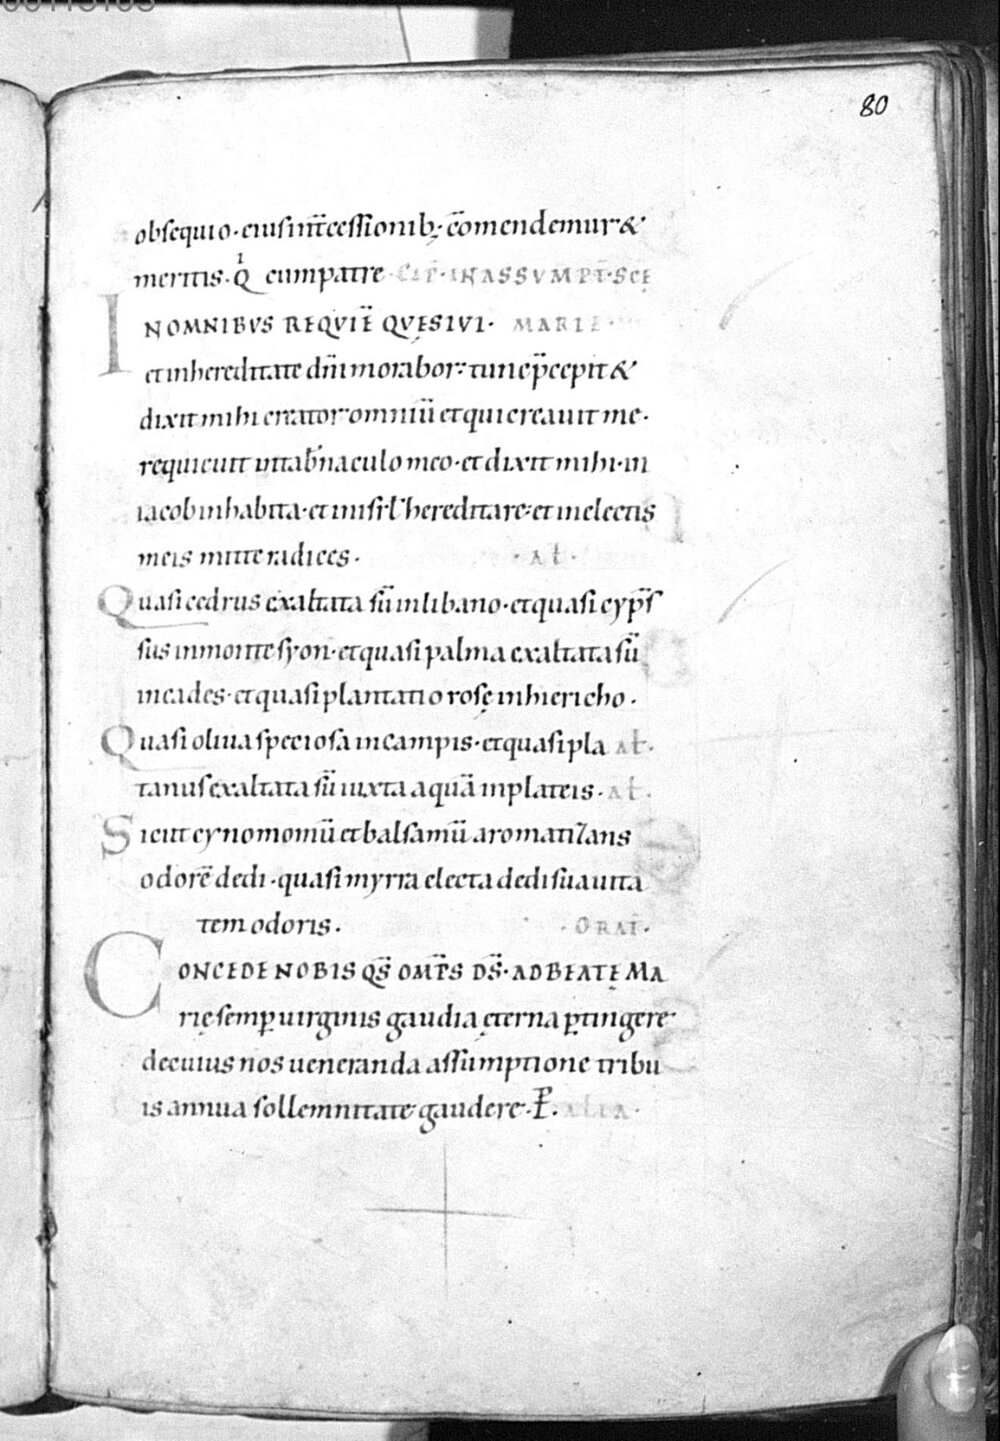 80
obsequio · eiusint̅cessionib; · co̅mendemur &
meritis · Qⁱ cumpatre · CAP̅ · INASSVMPT̅ · SCE̜
INOMNIBVS REQVIE̅ QVE̜SIVI · MARIE ·
et inhereditate dn̅i morabor : tunc p̅cepit &
dixit mihi creator omniu̅ et qui creauit me ·
requieuit intab̅naculo meo · et dixit mihi · in
iacob inhabita · et inisrl̅ hereditare · et inelectis
meis mitte radices · · aƚ ·
Quasi cedrus exaltata su̅ inlibano · et quasi cyp̅s
sus inmonte syon · et quasi palma exaltata su̅
incades · et quasi plantatio rose̜ inhiericho ·
Quasi oliua speciosa incampis · et quasi pla aƚ ·
tanus exaltata su̅ iuxta aqua̅ inplateis · aƚ ·
Sicut cynomomu̅ et balsamu̅ aromatizans
odore̅ dedi · quasi myrra electa dedi suauita
tem odoris · · ORAT̅ ·
CONCEDE NOBIS QS̅ OMP̅S DS̅ · ADBEATE̜ MA
rie̜ semp̲ uirginis gaudia e̜terna p̲tingere
decuius nos ueneranda assumptione tribu
is annua sollemnitate gaudere · P̲ · ALIA ·